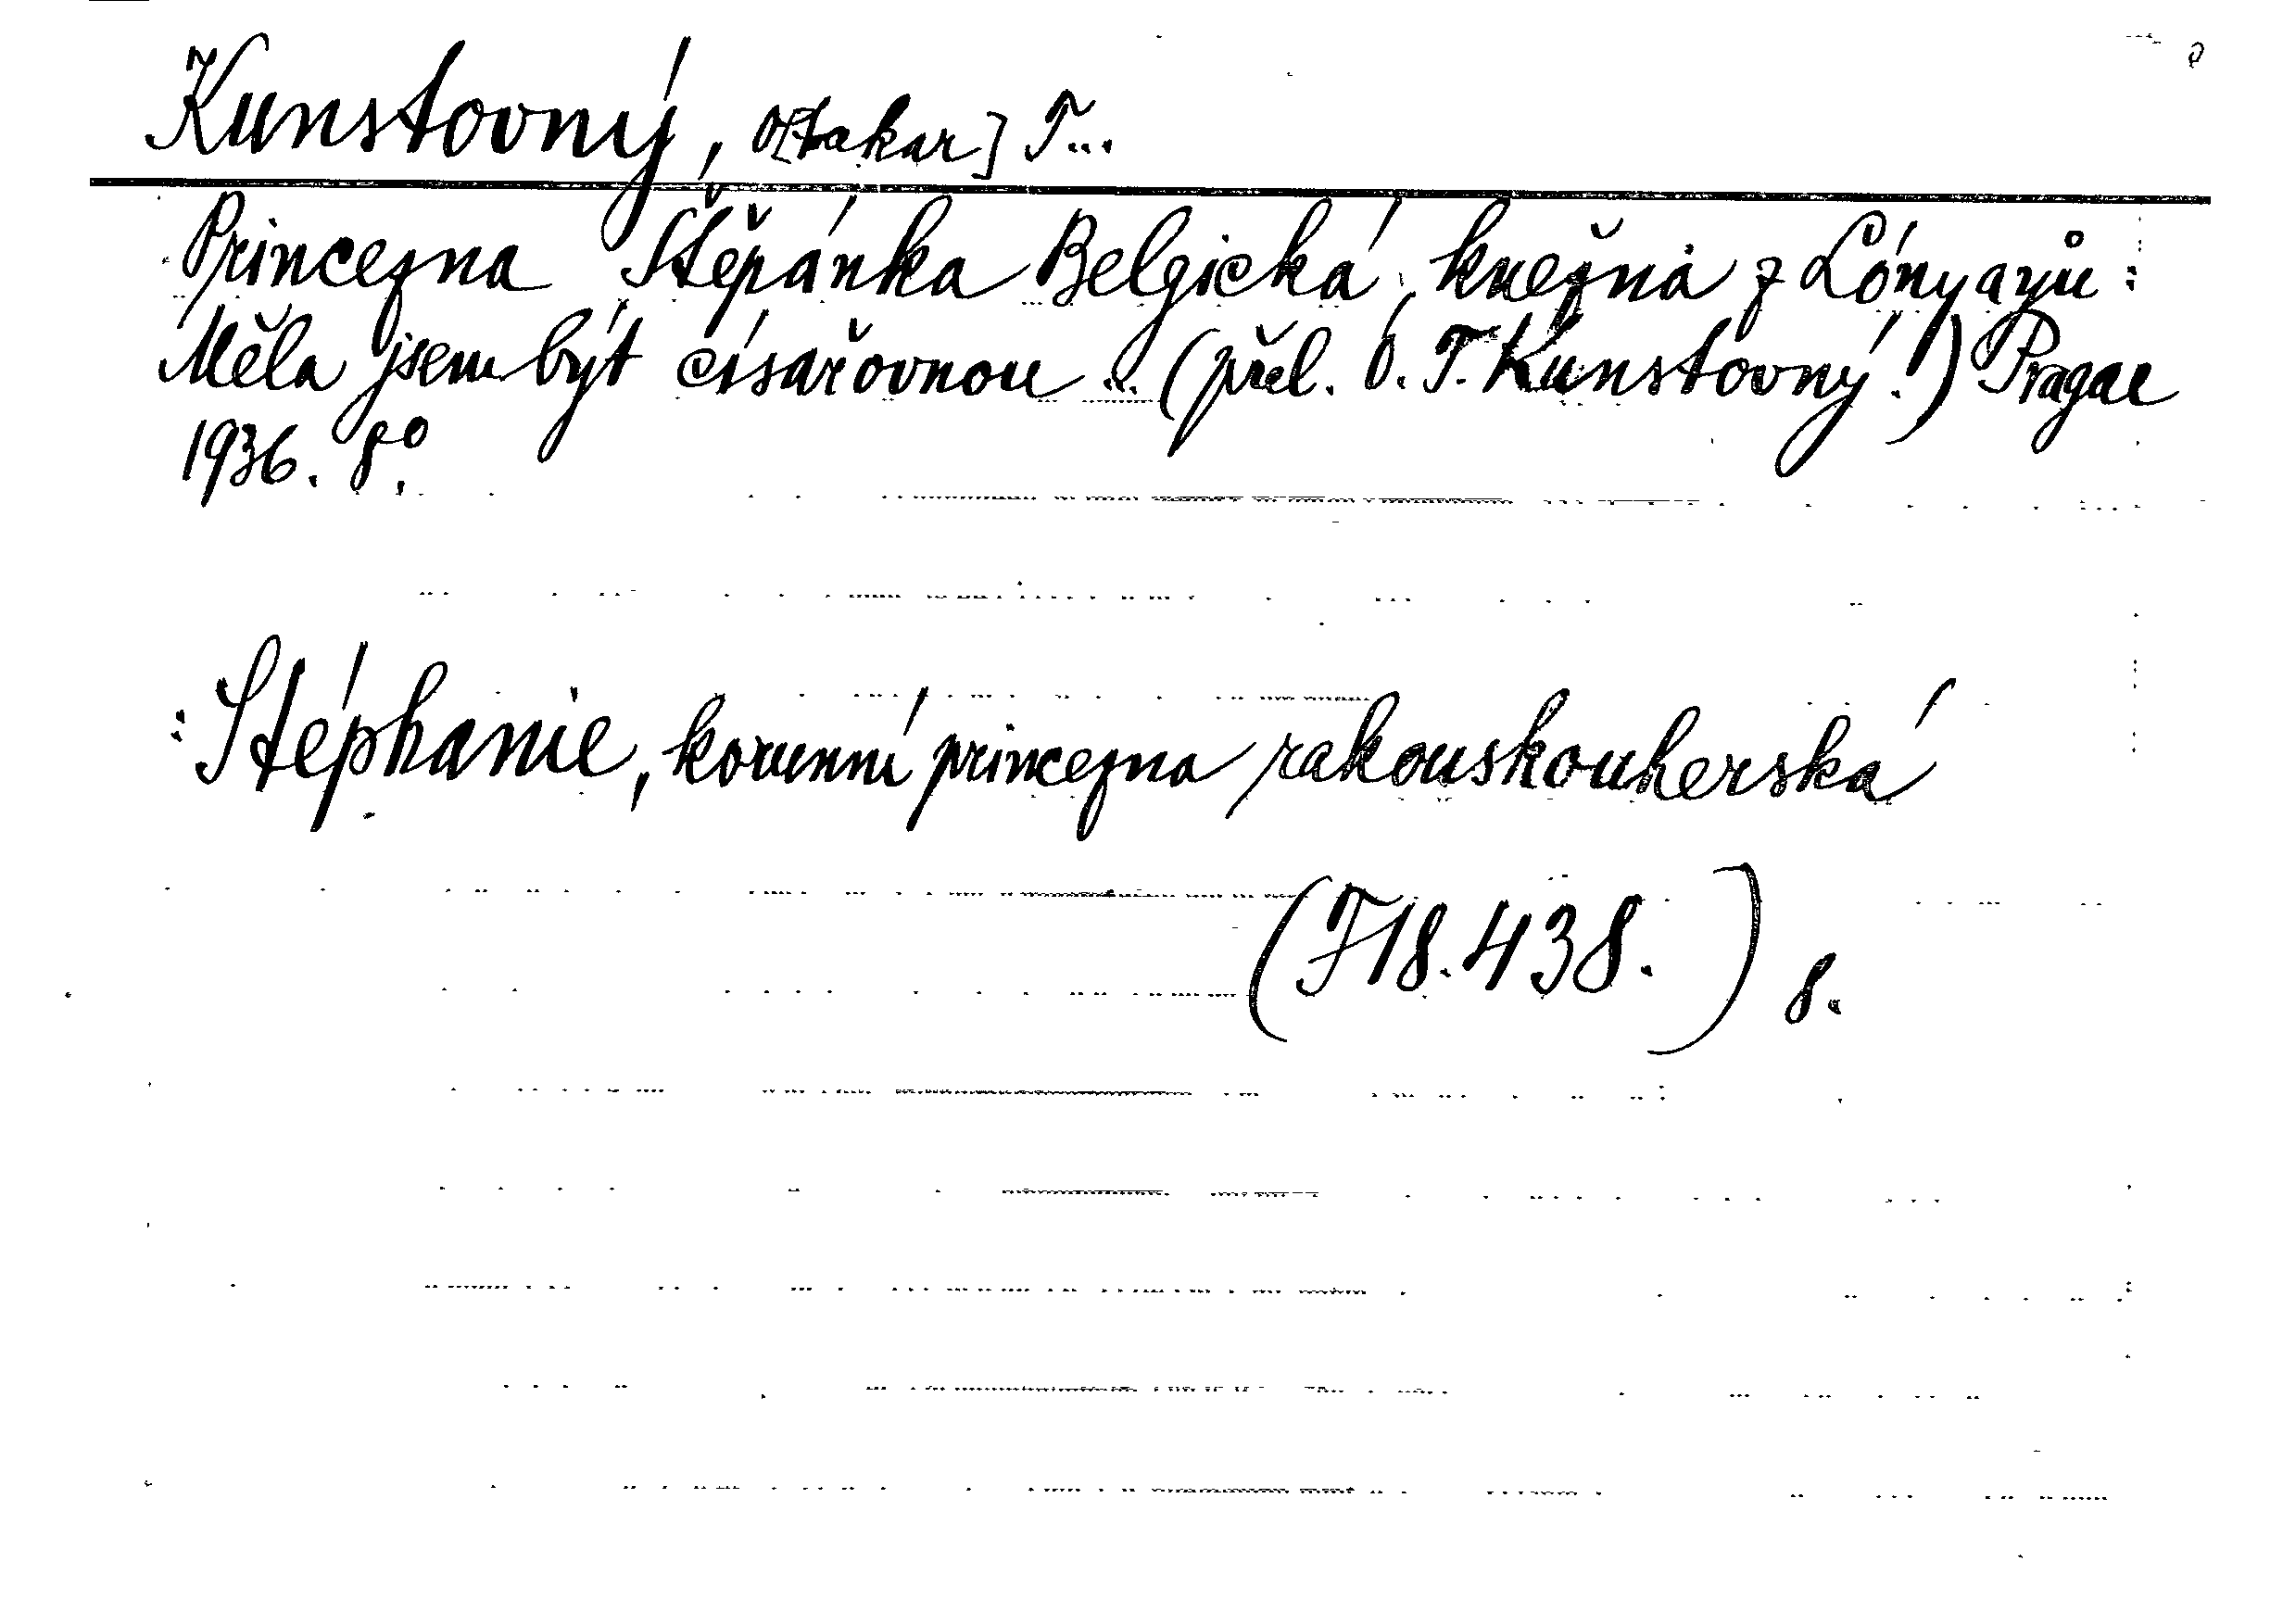 Kunstovný, O[takar] T...
Princezna Štěpánka Belgická, kněžna z Lónyayů:
Měla jsem být císařovnou ... (přel. O. T. Kunstovný.) Pragae
1936. 8°.
: Stéphanie, korunní princezna rakouskouherská
(F18.438.) 8.